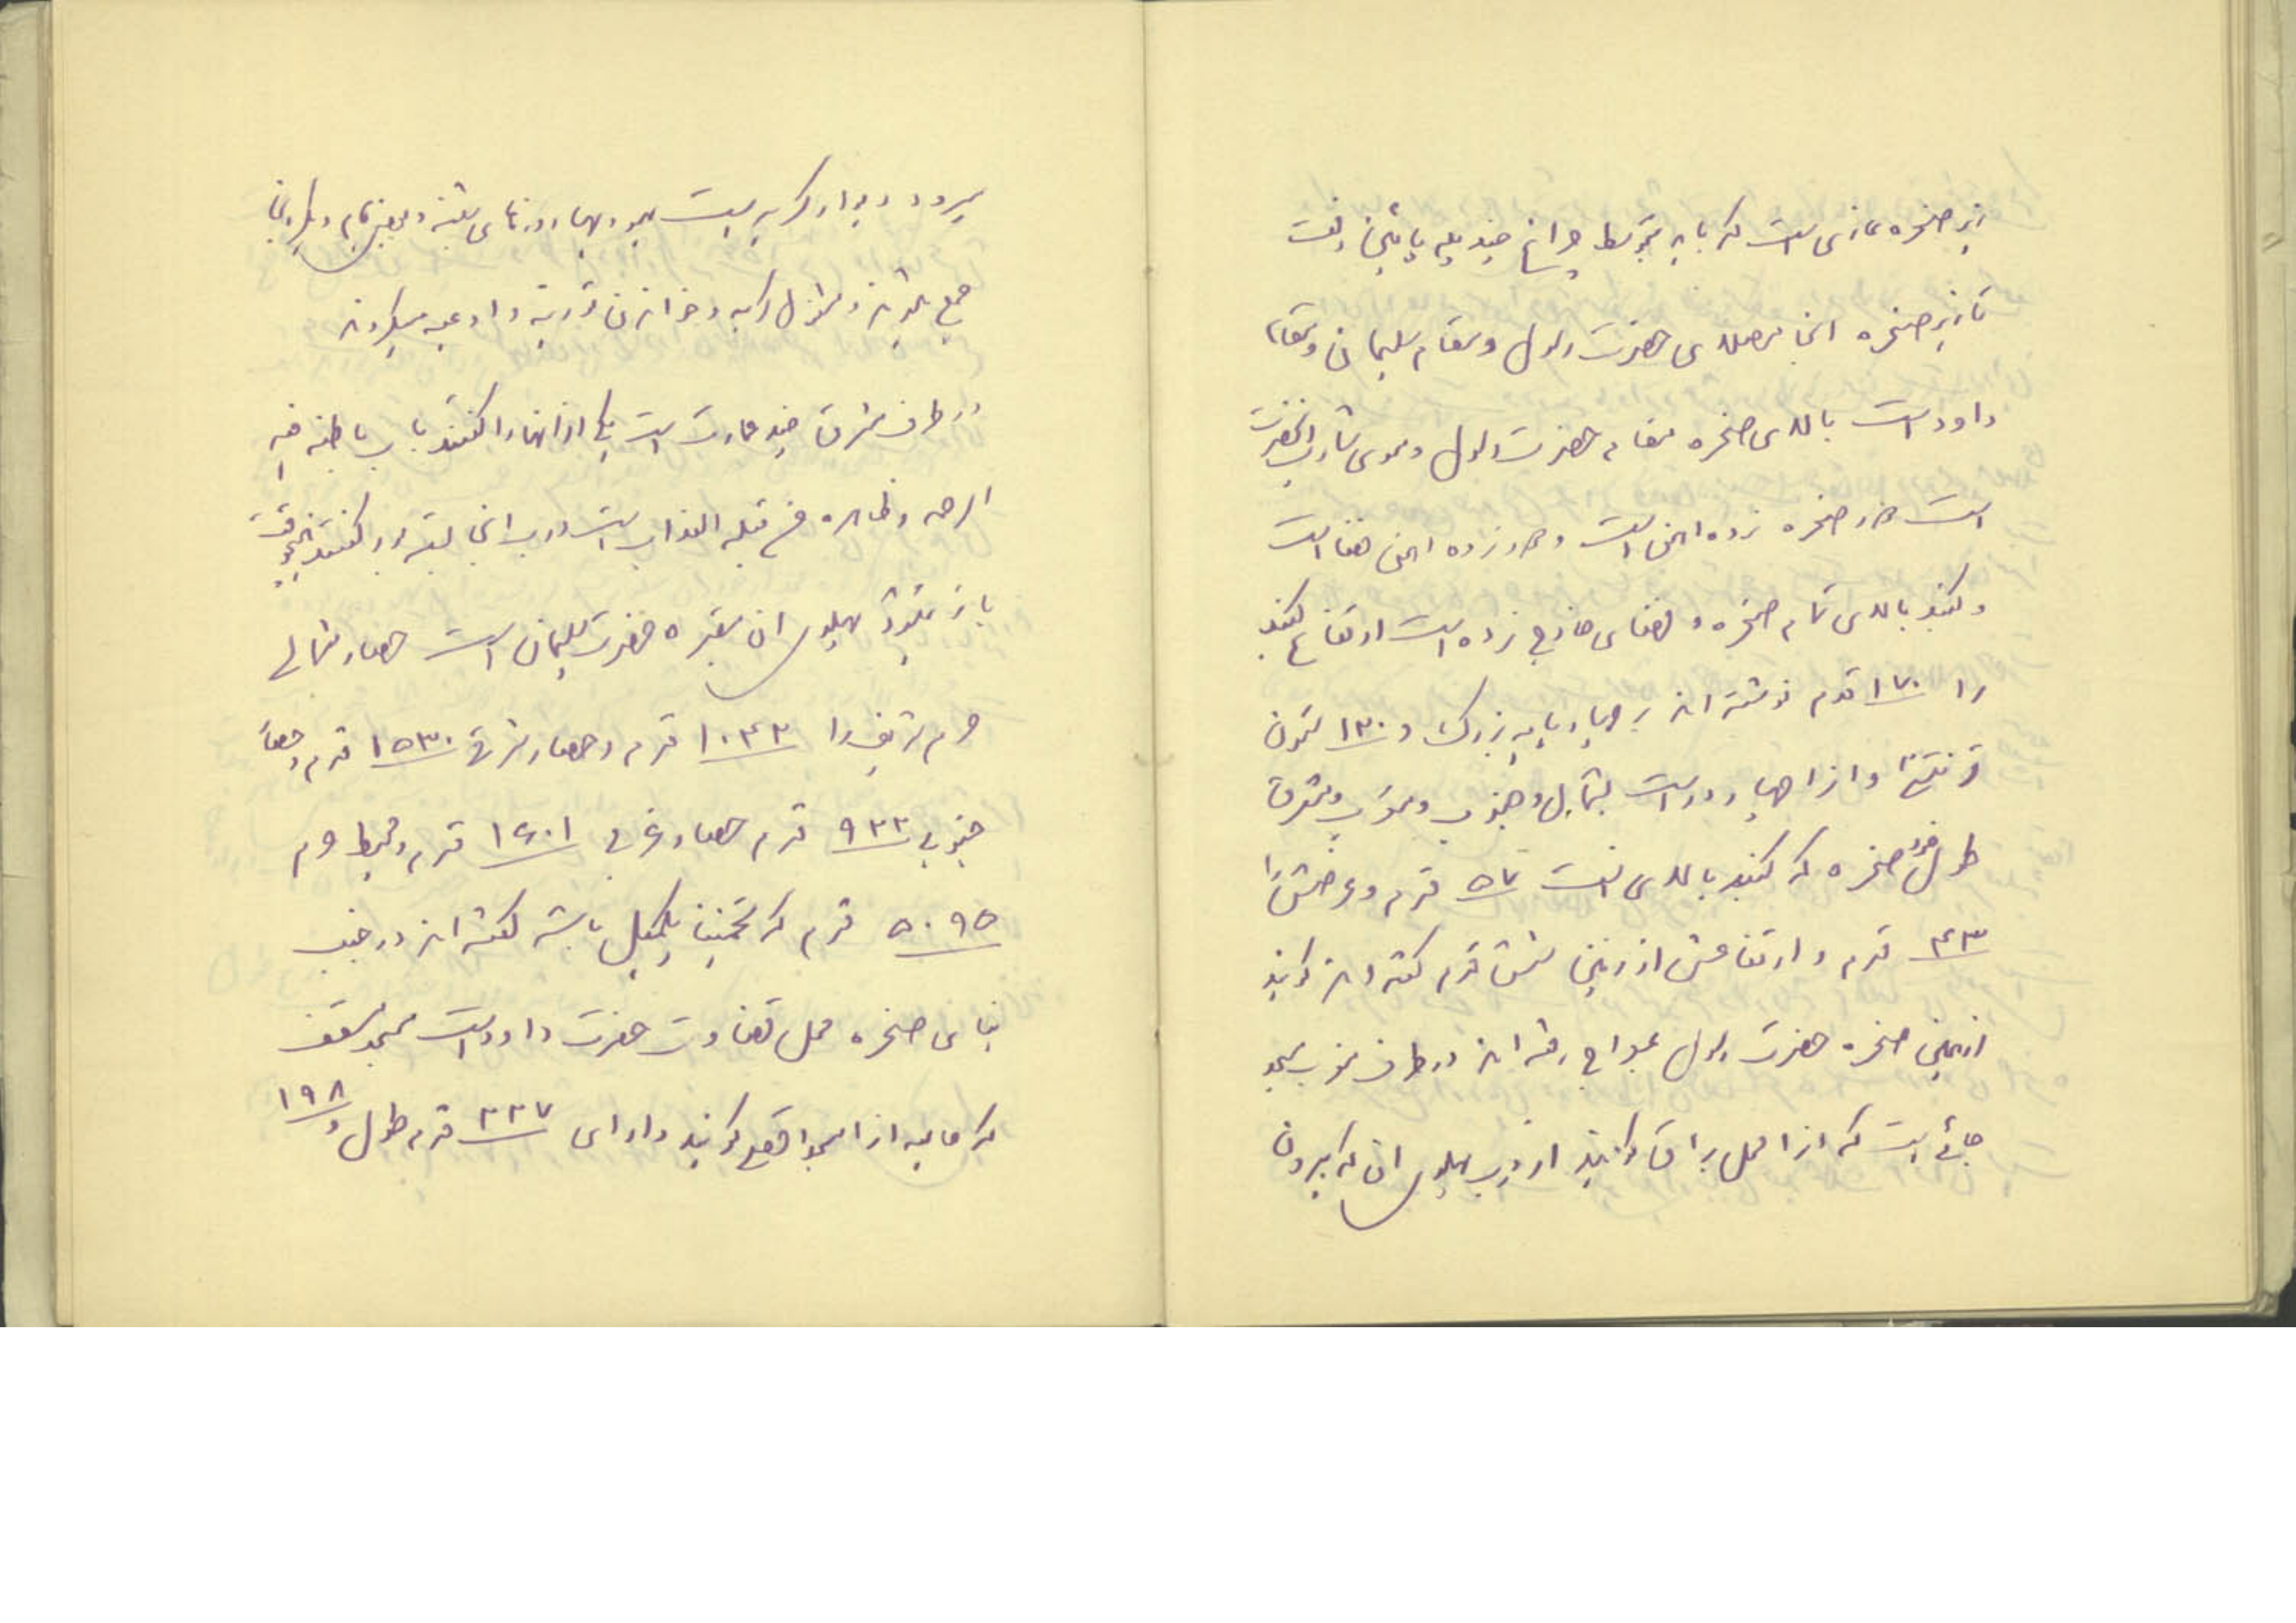 زیر صخره غاری است که باید بتوسط چراغ چند پله پایین رفت
تا زیر صخره انجا مصلای حضرت رسول و مقام سلیمان و مقام
داود است بالای صخره مقام حضرت رسول و موی شارب انحضرت
است دور صخره نرده اهنی است و دور نرده اهن فضا است
و گنبد بالای تمام صخره و فضای خارج نرده است ارتفاع گنبد
را ۱۷۰ قدم نوشته اند چهار پایه بزرگ و ۱۳۰ ستون
دارد و از چهار در است بشمال و جنوب و مغرب و مشرق
طول خود صخره که گنبد بالای انست ۵۷ قدم و عرضش را
۴۳ قدم و ارتفاعش از زمین شش قدم گفته اند گویند
از همین صخره حضرت رسول بمعراج رفته اند در طرف مغرب مسجد
جائی است که از محل براق گویند از درب پهلوی ان که بیرون
میرود دیوار گریه است یهود بهار روزهای شنبه و بعض ایام دیگر انجا
جمع میشوند و مشغول گریه و خواندن توریة و ادعیه میگردند
در طرف مشرق چند عمارت است یکی از انها را گفتند باب باطنه فیه
الرحمه و ظاهره من قبله العذاب است درب انجا بسته بود گفتند هیچوقت
باز نمیشود پهلوی ان مقبره حضرت سلیمان است حصار شمالی
حرم شریف را ۱۰۴۳ قدم و حصار شرقی ۱۵۳۰ قدم و حصار
جنوبی ۹۲۲ قدم حصار غربی ۱۶۰۱ قدم و محیط حرم
۵۰۹۵ قدم که تخمینا یکمیل باشد گفته اند در جنب
بنای صخره محل قضاوت حضرت داود است مسجد سقف
که حالیه از مسجد اقصی گویند دارای ۲۳۷ قدم طول و ۱۹۸